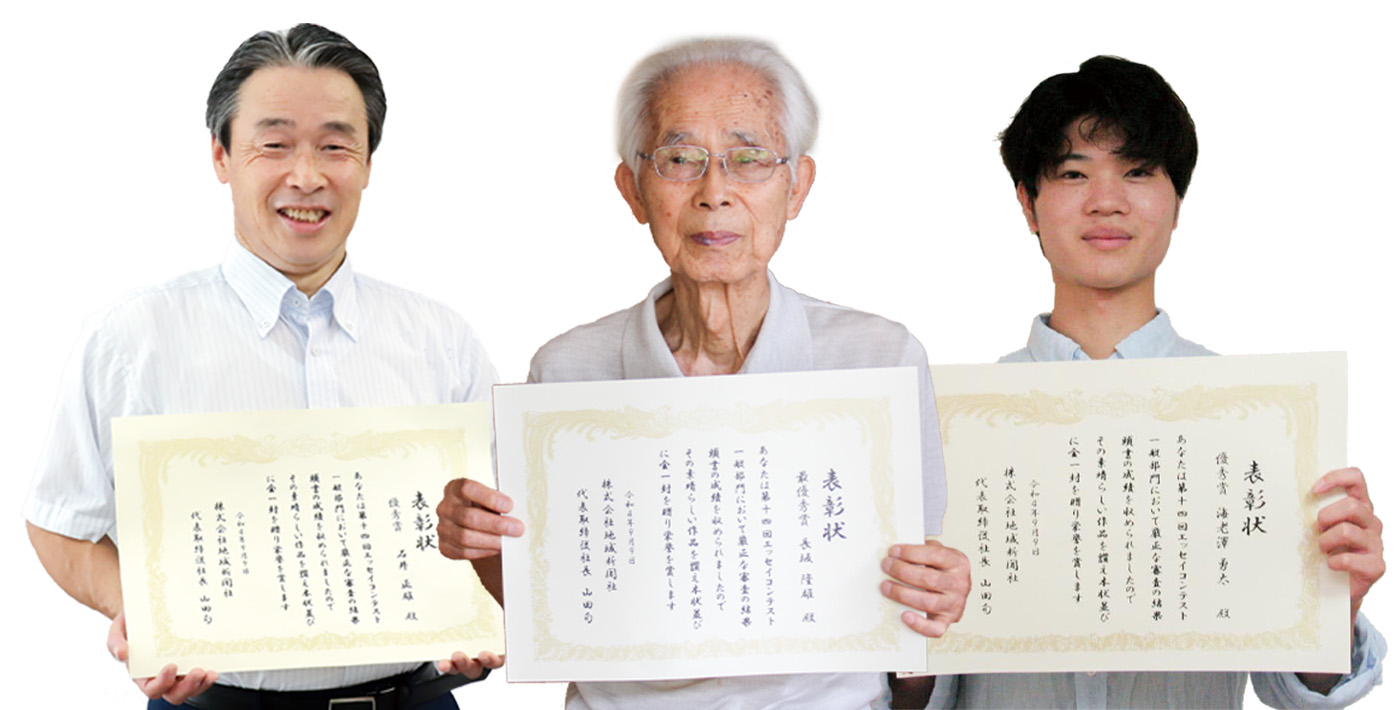 表彰状
優秀賞 石井 正雄 殿
あなたは第十四回エッセイコンテスト
一般部門において厳正な審査の結果
頭書の成績を収められましたので
その素晴らしい作品を讃え本状並び
に金一封を贈り栄誉を賞します
令和4年9月9日
株式会社地域新聞社
代表取締役社長 山田旬
表彰状
最優秀賞 長坂 隆雄 殿
あなたは第十四回エッセイコンテスト
一般部門において厳正な審査の結果
頭書の成績を収められましたので
その素晴らしい作品を讃え本状並び
に金一封を贈り栄誉を賞します
令和4年9月9日
株式会社地域新聞社
代表取締役社長 山田旬
表彰状
優秀賞 海老澤 勇太 殿
あなたは第十四回エッセイコンテスト
一般部門において厳正な審査の結果
頭書の成績を収められましたので
その素晴らしい作品を讃え本状並び
に金一封を贈り栄誉を賞します
令和4年9月9日
株式会社地域新聞社
代表取締役社長 山田旬